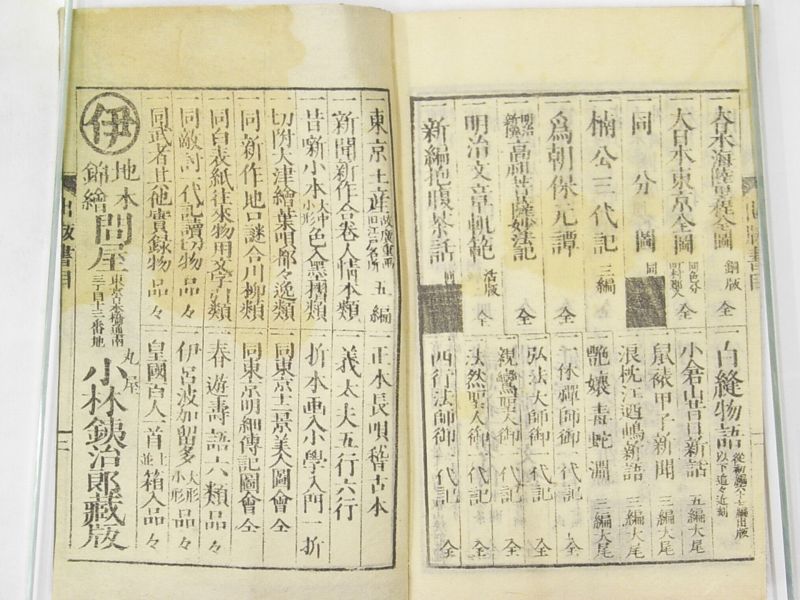 大日本海陸里程全圖 銅版 全
大日本東京全圖 全
同 分 圖 同
楠公三代記 三編
爲朝保元譚 全
高祖 妙法記 全
明治文章軌範 活版 全
新編抱腹茶話
白縫物語
小倉山昔日新話 五編大尾
鼠裱甲子新聞 三編大尾
浪枕江の嶋新語 三編大尾
艶娘毒蛇淵 三編大尾
一休禪師御一代記 全
弘法大師御一代記 全
親鸞聖人御一代記 全
法然聖人御一代記 全
西行法師御一代記 全
出版書目
東京土産 五編
新聞新作合卷人情本類
昔噺小本 色入墨摺類
切附大津繪葉唄都々逸類
同新作地口謎合川柳類
同白表紙往來物用文字引類
同敵討一代記讀切物 品々
同武者其他實録物 品々
正本長唄稽古本
義太夫五行六行
折本画入小學入門一折
同東京十二景美人圖會 全
同東京明細傳記圖會 全
春遊壽語六類品々
伊呂波加留多 大形 小形 品々
皇國百人一首 上 並 箱入品々
伊
地本
錦繪
問屋
東京日本橋通南
三丁目十三番地
丸屋
小林銕治郎藏版